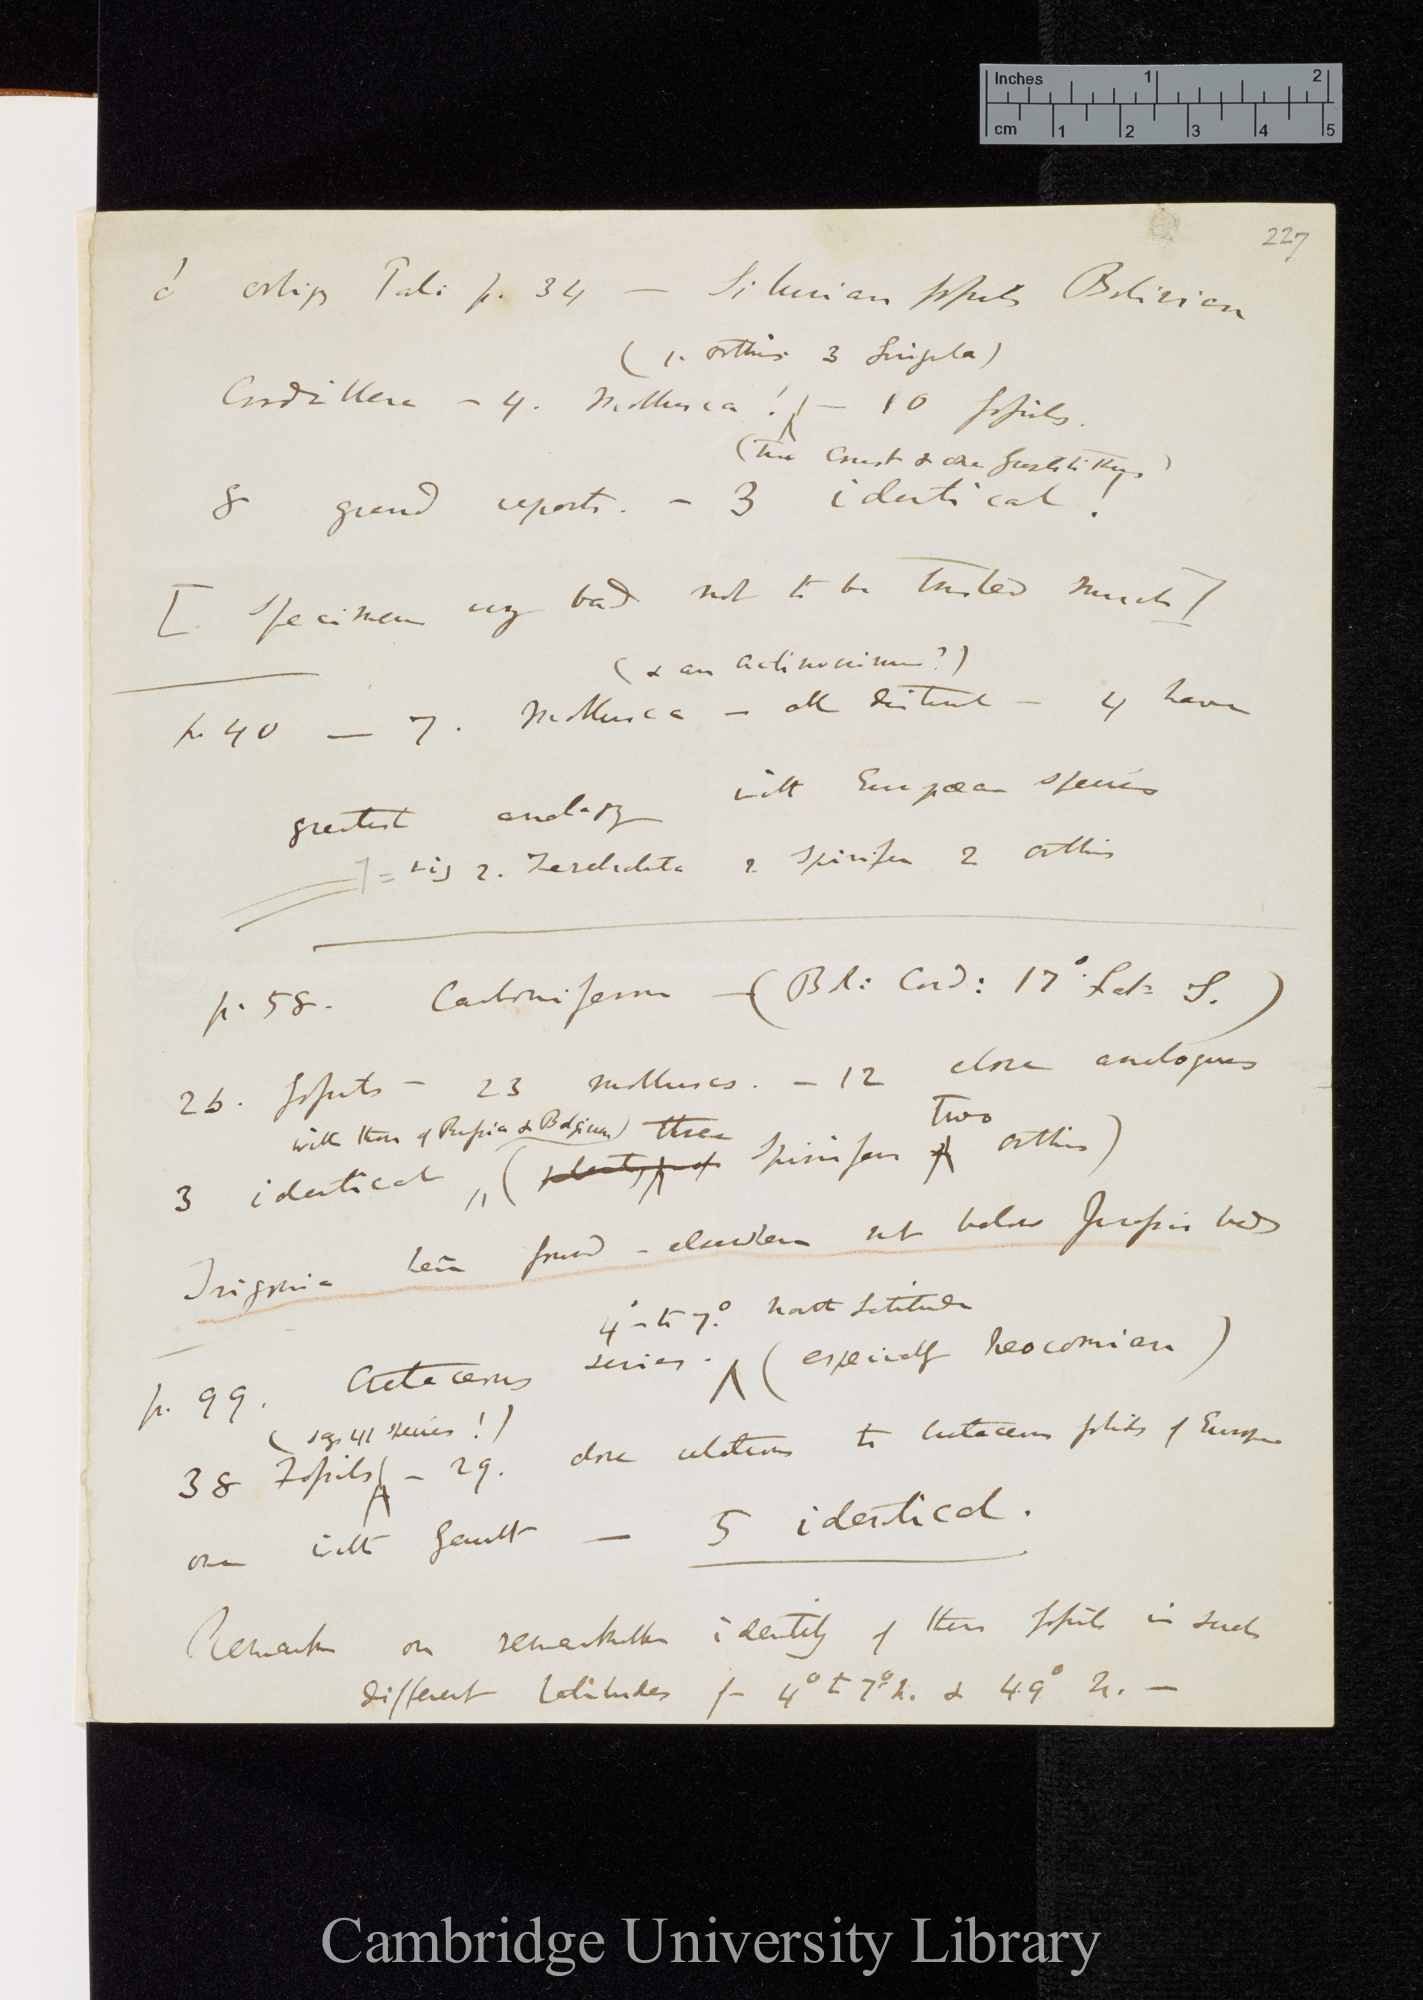 Inches 1 2
cm 1 2 3 4 5
227
d' orbigny Pal: p. 34 — Silurian fossils Bolivian
(1. orthis 3 Lingula)
Cordillera — 4. Mollusca ! — 10 fossils.
(two Crust & one
8 grand reports. — 3 identical !
[Specimen very bad not to be trusted much]
(& an Actinocrinus?)
p. 40 — 7. Mollusca — all distinct — 4 have
greatest analogy with European species
2. Terebratula 2 Spirifer 2 orthis
p. 58. Carboniferous — (Bol: Cord: 17° Lat: S.)
26. fossils — 23 molluscs. — 12 close analogues
with those of Russia & Belgium) three Two
3 identical ( Spirifers orthis)
Trigonia here found — elsewhere not below Jurassic beds
4° to 7° North Latitude
p. 99. Cretaceous series. (especially Neocomian)
(says 41 species !)
38 Fossils — 29. close relations to Cretaceous fossils of Europe
one with Gault — 5 identical.
Remarks on remarkable identity of these fossils in such
different latitudes f— 4° to 7° N. & 49° N. —
Cambridge University Library